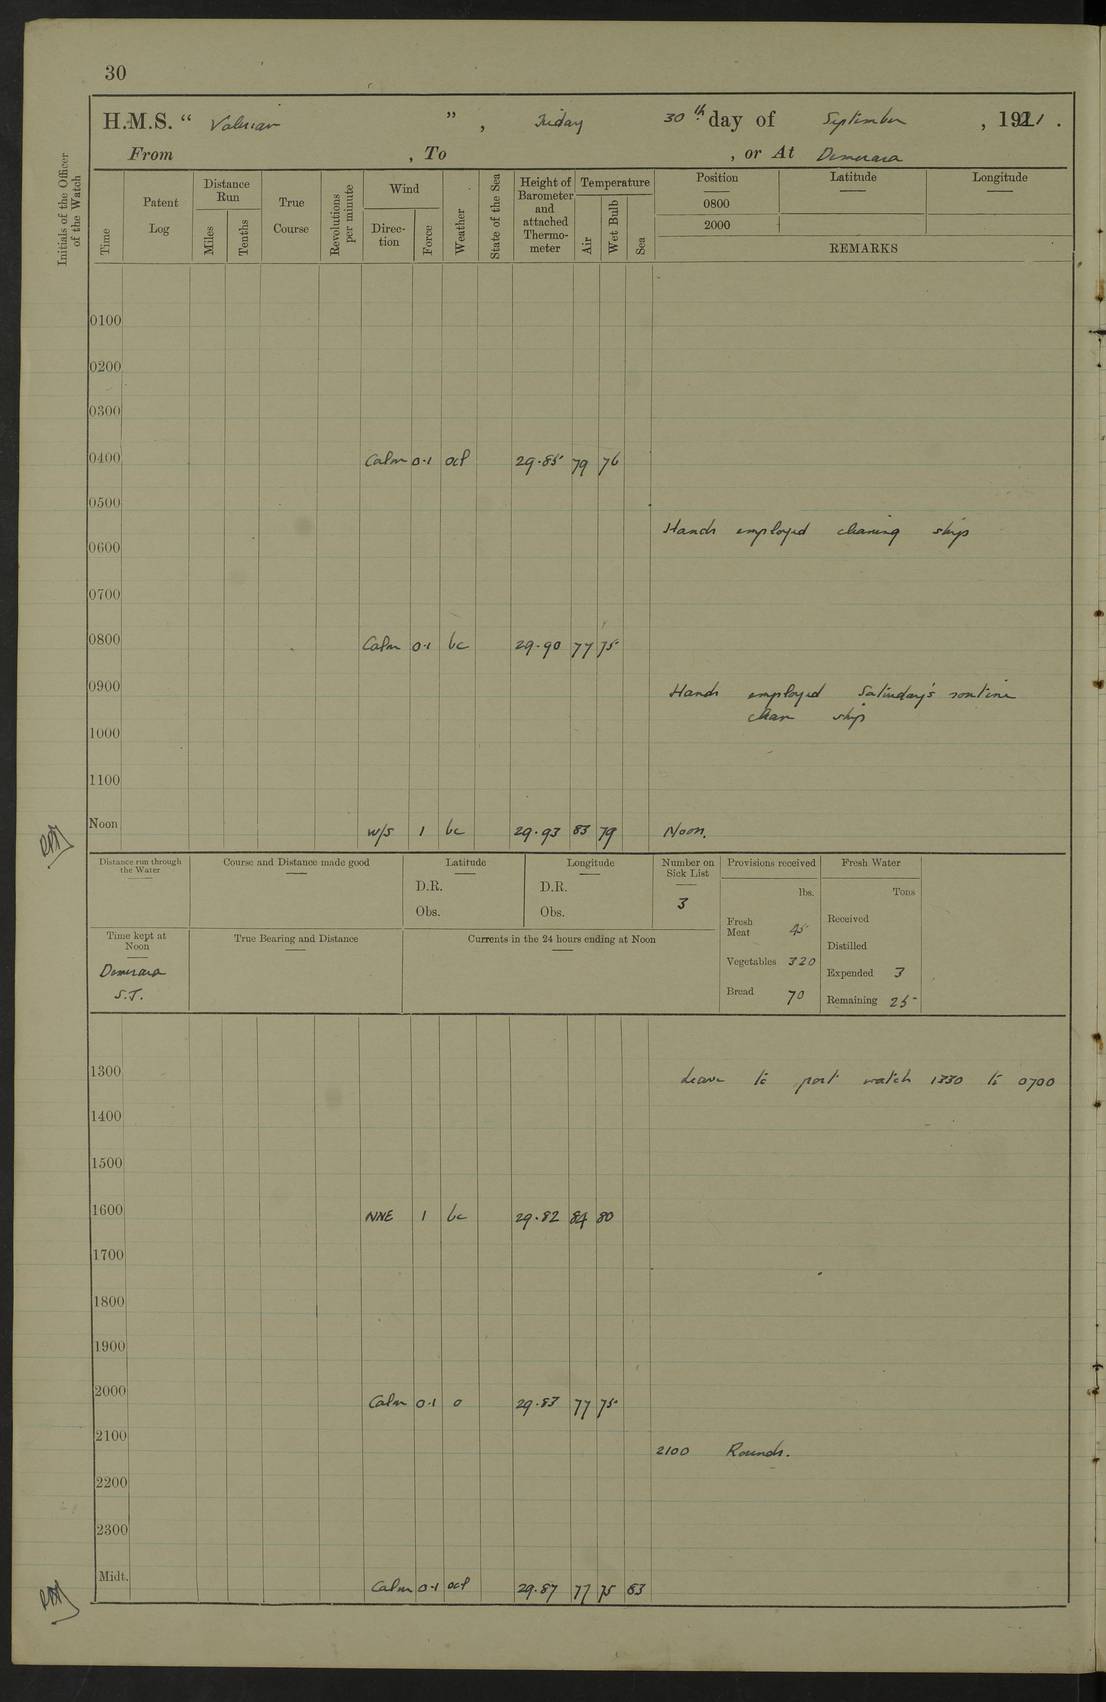 30
H.M.S. “ Valerian ” , Friday 30th day of September , 1921 .
From , To , or At Demerara
Initials of the Officer of the Watch
Time
Patent Log
Distance Run
Miles
Tenths
True Course
Revolutions per minute
Wind
Direction
Force
Weather
State of the Sea
Height of Barometer and attached Thermometer
Temperature
Air
Wet Bulb
Sea
Position
0800
2000
Latitude
Longitude
REMARKS
0100
0200
0300
0400 Calm 0.1 ocl 29.85 79 76
0500
Hands employed cleaning ship
0600
0700
0800 Calm 0.1 bc 29.90 77 75
0900 Hands employed Saturday's routine
clean ship
1000
1100
Noon W/S 1 bc 29.93 83 79 Noon.
Distance run through the Water
Course and Distance made good
Latitude
D.R.
Obs.
Longitude
D.R.
Obs.
Number on Sick List
3
Provisions received
lbs.
Fresh Meat 45
Vegetables 320
Bread 70
Fresh Water
Tons
Received
Distilled
Expended 3
Remaining 25
Time kept at Noon
Demerara
S.T.
True Bearing and Distance
Currents in the 24 hours ending at Noon
1300 Leave to port watch 1330 to 0700
1400
1500
1600 NNE 1 bc 29.82 84 80
1700
1800
1900
2000 Calm 0.1 o 29.83 77 75
2100
2100 Rounds.
2200
2300
Midt. Calm 0.1 ocl 29.87 77 75 83